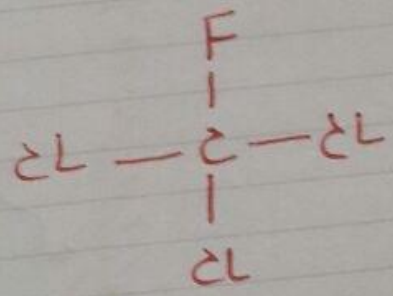 F
|
CL — C — CL
|
CL